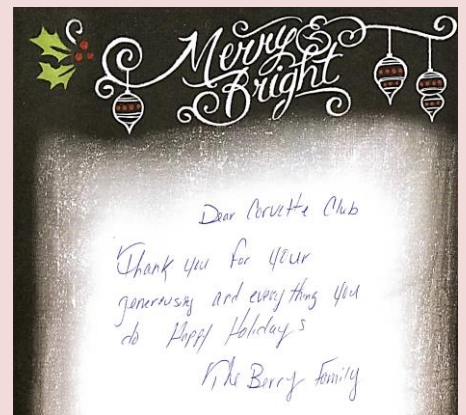 Merry &
Bright
Dear Corvette Club
Thank you for your
generousity and everything you
do Happy Holidays
The Berry Family